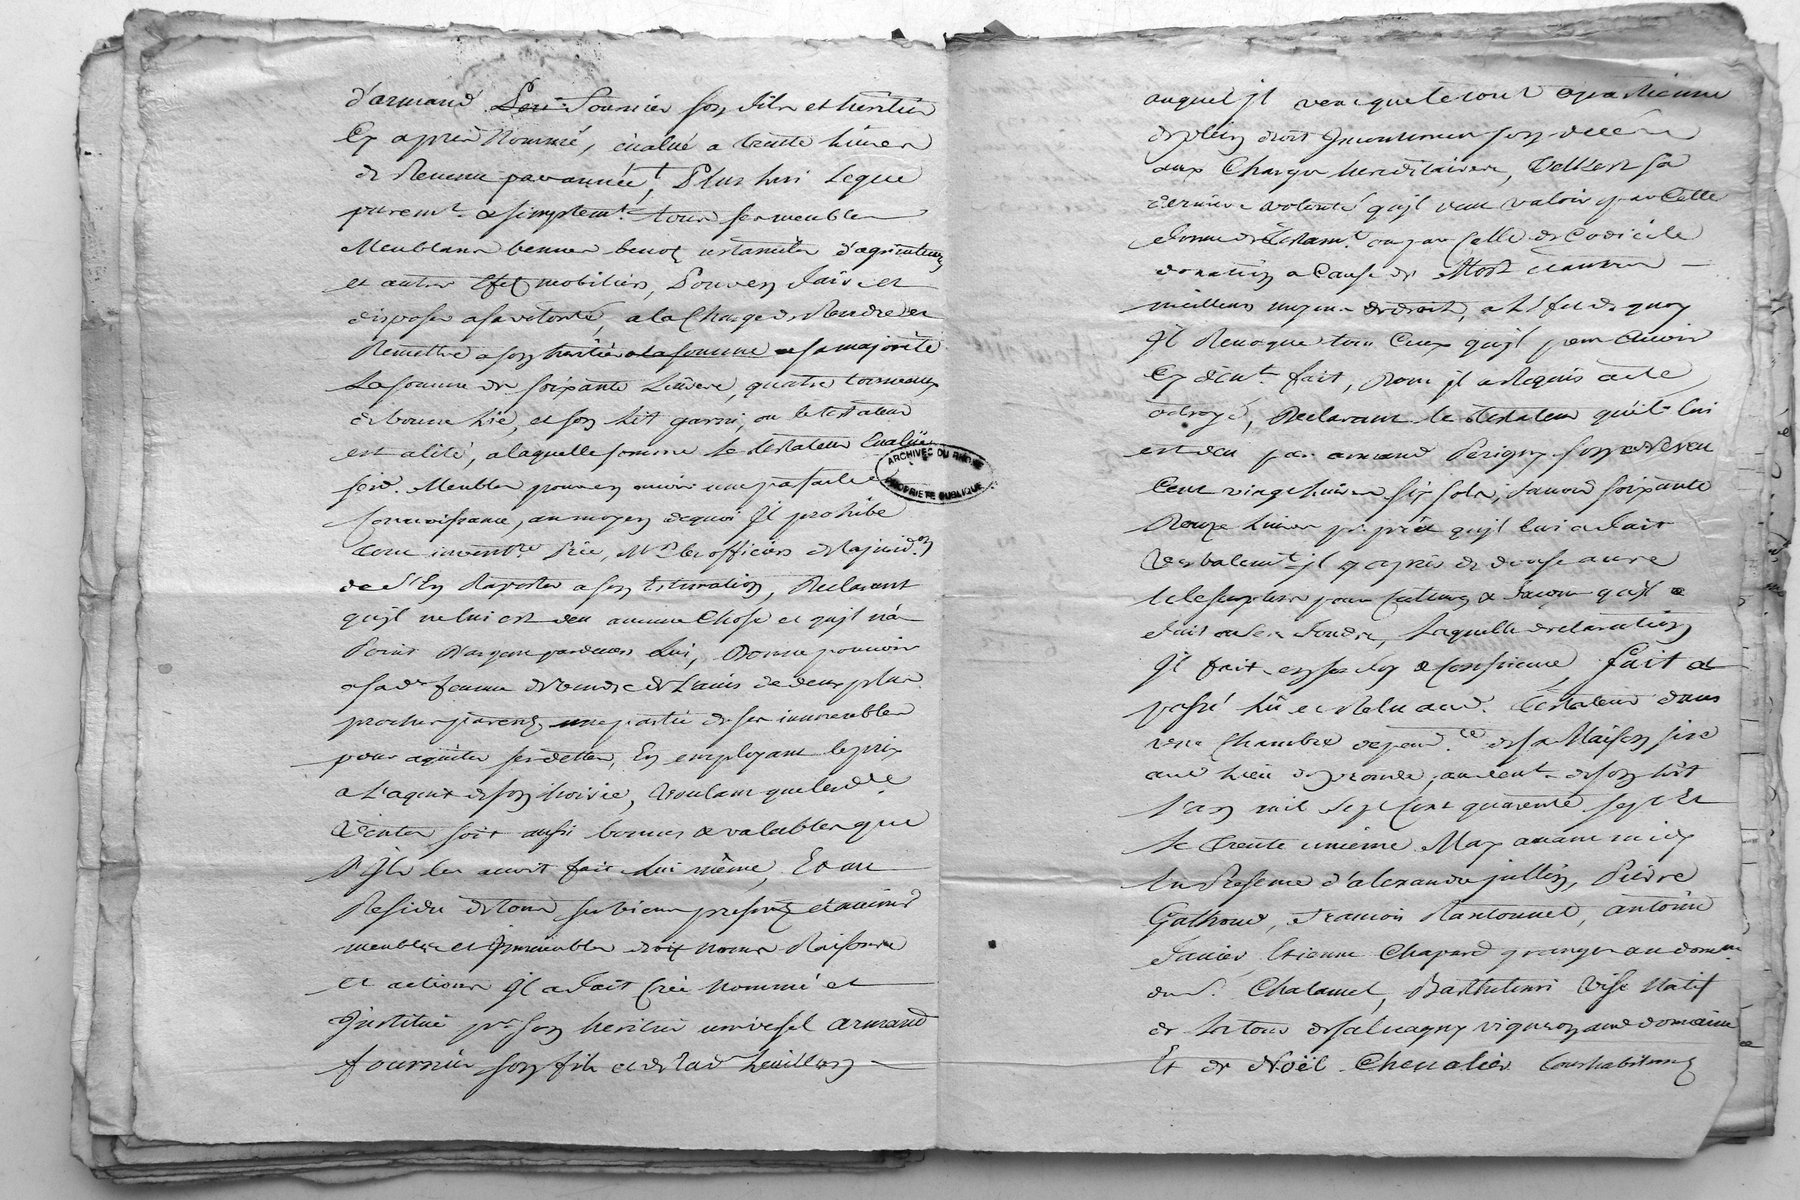 d'armand Fournier son fils et héritier
Cy après Nommé, évalué a trente Livres
de Revenu par année, Plus luy Legue
purem.t & simplem.t tous ses meubles
Meublans bennes benot ustanciles d'agriculture
et autres Effet mobiliers, Pouvoir faire et
disposer a sa volonté, a la Charge de Rendre et
Remettre a son héritier a la somme a sa majorité
La somme de soixante Livres, quatre tonneaux
de bonne Lie, et son Lit garni, ou le testateur
est alité, a laquelle somme le testateur Evalüe
sesd. Meubles pour en avoir une parfaite
Connoissance, au moyen de quoi Il prohibe
tout invent.re Prie, M.rs les officiers de la jurid.on
de s'En Raporter a son Estimation, Declarant
qu'il ne lui est deu aucune Chose et qu'il n'a
Point D'argent pardevers Lui, Donne pouvoir
a sad.e femme de vendre de L'avis de deux plus
proches parens une partie de ses immeubles
pour aquiter ses dettes, En employant le prix
a L'aquit de son hoirie, Voulant que lesd.es
Ventes soit aussi bonnes & valables que
s'Il les avoit fait Lui même, Et au
Residu de tous ses biens presens et avenir
meubles et Immeubles droit noms Raisons
et actions Il a fait Créé Nommé et
Institué p.r son heritier universel armand
fournier son fils et de lad.e
auquel jl veut que le tout apartienne
de plein droit Incontinent son decès
aux Charges hereditaires, telle est sa
derniere volonté qu'jl veut valoir par Celle
forme de testam.t ou par Celle de Codicile
donation a Cause de Mort et autres
meilleurs moyens de droit, a L'Effet de quoy
Il Revoque tous Ceux qu'jl peut avoir
Cy dev.t fait, Dont jl a Requis acte
octroyé, Declarant le testateur qu'il lui
est deu par armand Perigny son neveu
Cent vingt Livres six sols, savoir soixante
Douze Livres p.r prêt qu'jl lui a fait
Verbalem.t jl y a près de douse ans
le surplus pour Cultures & façons qu'jl a
fait a ses fonds, Laquelle declaration
Il fait en sa foy & Conscience, fait et
passé Lû et Relu aud. testateur dans
une Chambre depend.ce de sa Maison sise
aud Lieu au dev.t de son Lit
l'an mil sept Cent quarente sept Et
le trente unième May avant midy
En Presence d'alexandre jullien, Pierre
Gathond, francois Rantonnet, antoine
Janier, Etienne Chapard granger au dom.ne
du S. Chalamel, Barthelemi Vise Natif
de La tour de salvagny vigneron aud domaine
Et de Noël Chevalier tous habitans
ARCHIVES DU RHÔNE
PROPRIÉTÉ PUBLIQUE